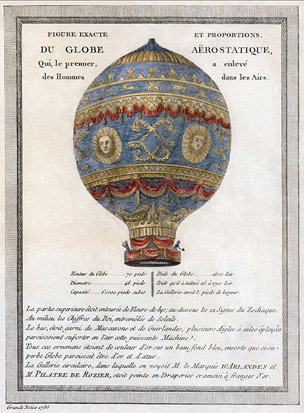 FIGURE EXACTE ET PROPORTIONS,
DU GLOBE AËROSTATIQUE,
Qui, le premier, a enlevé
des Hommes dans les Airs.
Hauteur du Globe 70 pieds
Diametre 46 pieds
Capacité 60000 pieds cubes
Poids du Globe 1600 Liv.
Poids qu'il à enlevé 16 à 1700 Liv.
La Gallerie avoit 3 pieds de largeur
La partie superieure étoit entourée de Fleurs-de-lys, au dessous les 12 Signes du Zodiaque.
Au milieu les Chiffres du Roi, entremêlés de Soleils.
Le bas, étoit garni de Mascarons et de Guirlandes; plusieurs Aigles à ailes éployées
paroissoient supporter en l'air cette puissante Machine.
Tous ces ornemens étoient de couleur d'or sur un beau fond bleu, ensorte que ce su-
perbe Globe paroissoit être d'or et d'azur.
La Gallerie circulaire, dans laquelle on voyoit M. le Marquis D'ARLANDES et
M. PILATRE DE ROZIER, étoit peinte en Draperies cramoisi à franges d'or